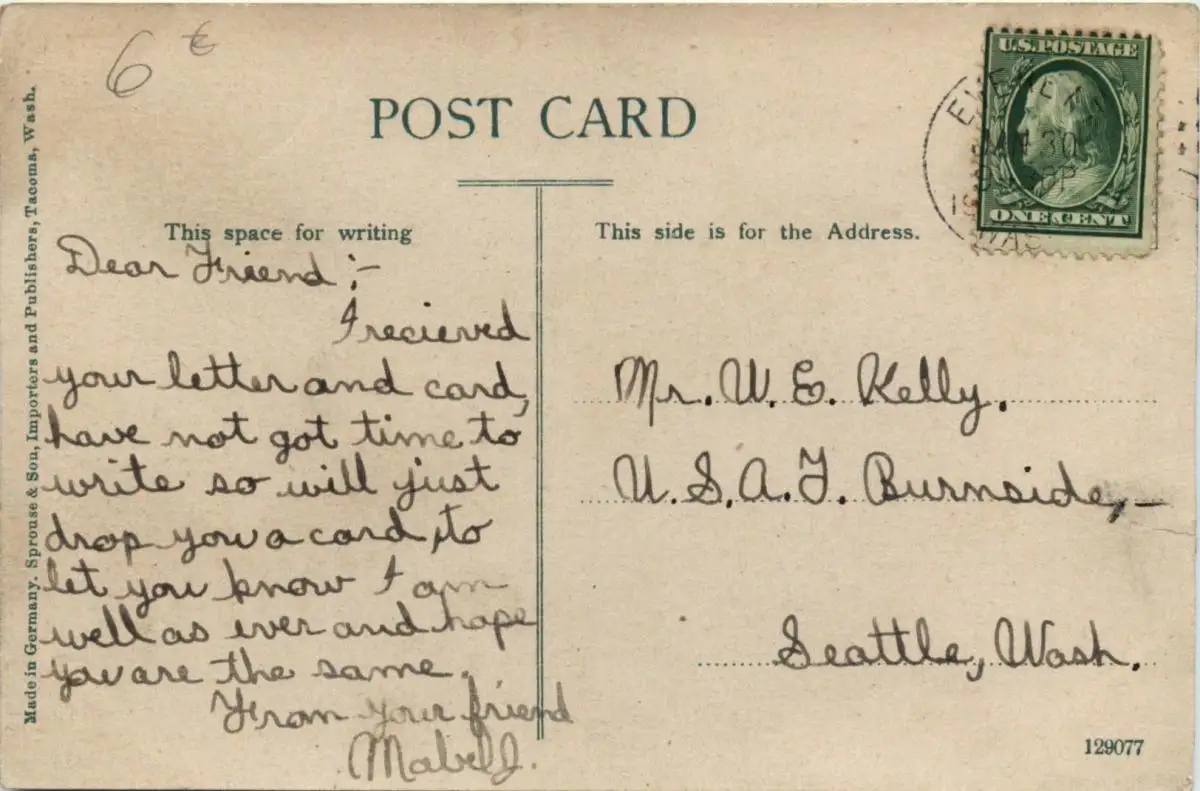 6 €
POST CARD
This space for writing
This side is for the Address.
U.S. POSTAGE
ONE CENT
JAN 30
Dear Friend :-
I recieved
your letter and card,
have not got time to
write so will just
drop you a card, to
let you know I am
well as ever and hope
you are the same.
From your friend
Mabel J.
Mr. W. E. Kelly.
U. S. A. T. Burnside, -
Seattle, Wash.
129077
Made in Germany. Sprouse & Son, Importers and Publishers, Tacoma, Wash.